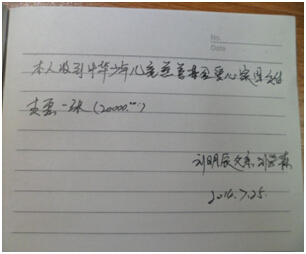 No.
Date
本人收到中华少年儿童慈善救助基金会爱心家园支付
支票一张(20000.00)
刘明辰父亲 刘
2014.7.25.